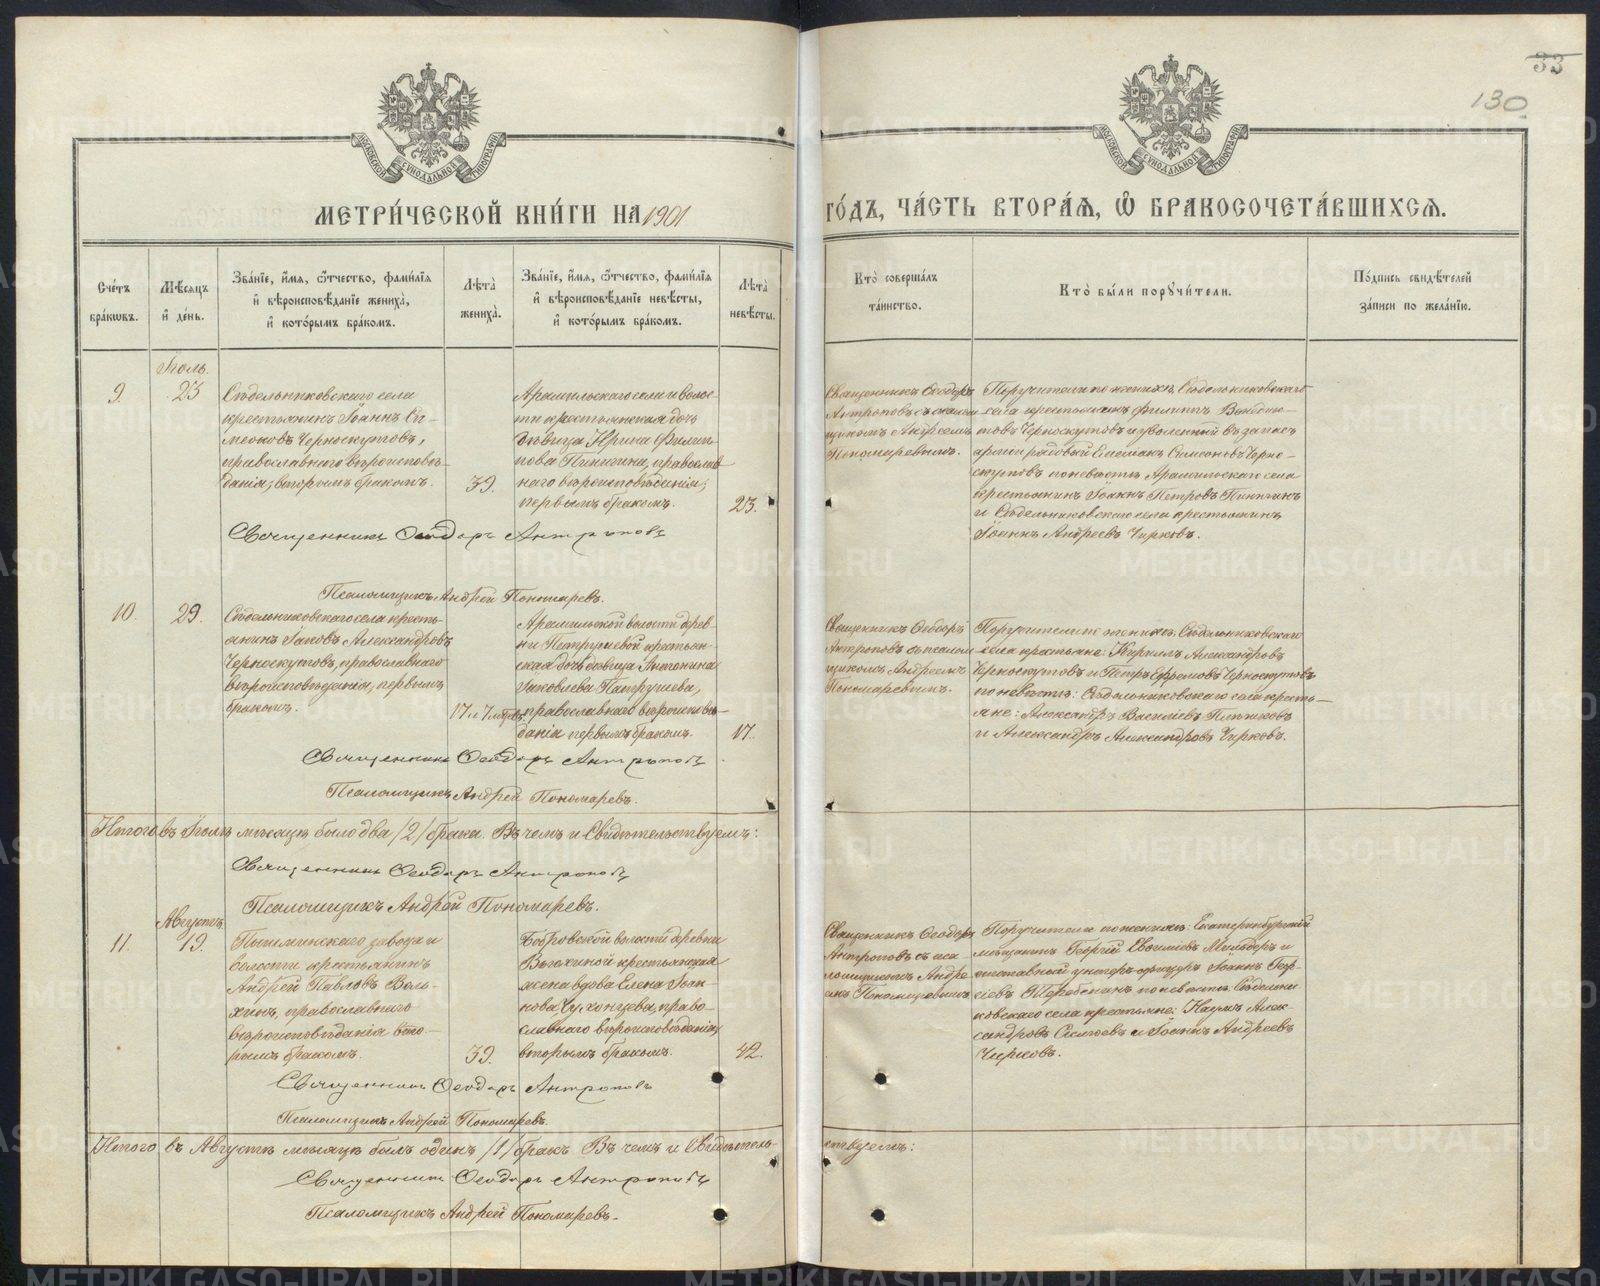 33
130
МЕТРИ́ЧЕСКОЙ КНИ́ГИ НА 1901
ГО́ДЪ, ЧА́СТЬ ВТОРА́Я, Ѽ БРАКОСОЧЕТА́ВШИХСЯ.
Сче́тъ бра́кѡвъ.
Мѣ́сяцъ и҆ де́нь.
Зва́нїе, и҆́мя, ѻ҆́тчество, фами́лїя
и҆ вѣроисповѣ́данїе жениха̀,
и҆ кото́рымъ бра́комъ.
Лѣ́та жениха̀.
Зва́нїе, и҆́мя, ѻ҆́тчество, фами́лїя
и҆ вѣроисповѣ́данїе невѣ́сты,
и҆ кото́рымъ бра́комъ.
Лѣ́та невѣ́сты.
Кто̀ соверша́лъ
та́инство.
Кто̀ бы́ли порꙋчи́тели.
По́дпись свидѣ́телей
за́писи по жела́нїю.
Іюль.
9.
23
Сѣдельниковскаго села
крестьянинъ Іоаннъ Си-
меоновъ Черноскутовъ,
православнаго вѣроисповѣ-
данія, вторымъ бракомъ.
39.
Арамильскаго села и волос-
ти крестьянская дочь
дѣвица Ирина Филип-
пова Пинигина, православ-
наго вѣроисповѣданія,
первымъ бракомъ.
23.
Священникъ Ѳеодоръ
Антроповъ съ псалом-
щикомъ Андреемъ
Пономаревымъ.
Поручители по женихѣ: Сѣдельниковскаго
села крестьянинъ Филиппъ
товъ Черноскутовъ и уволенный въ запасъ
арміи рядовый Симеоновъ Черно-
скутовъ по невѣстѣ: Арамильскаго села
крестьянинъ Іоаннъ Петровъ Пинигинъ
и Сѣдельниковскаго села крестьянинъ
Іоаннъ Андреевъ Чирковъ.
Священникъ Ѳеодоръ Антроповъ
Псаломщикъ Андрей Пономаревъ.
10.
29.
Сѣдельниковскаго села кресть-
янинъ Іаковъ Александровъ
Черноскутовъ, православнаго
вѣроисповѣданія, первымъ
бракомъ.
17 л. 7 мѣсяцевъ
Арамильской волости дерев-
ни Патрушевой крестьян-
ская дочь дѣвица Антонина
Іаковлева Патрушева,
православнаго вѣроисповѣ-
данія первымъ бракомъ.
17.
Священникъ Ѳеодоръ
Антроповъ съ псалом-
щикомъ Андреемъ
Пономаревымъ.
Поручители по женихѣ: Сѣдельниковскаго
села крестьяне: Кириллъ Александровъ
Черноскутовъ и Петръ Ефремовъ Черноскутовъ
по невѣстѣ: Сѣдельниковскаго села кресть-
яне: Александръ Василіевъ
и Александръ Александровъ Чирковъ.
Священникъ Ѳеодоръ Антроповъ
Псаломщикъ Андрей Пономаревъ.
Итого въ Іюлѣ мѣсяцѣ было два /2/ брака. Въ чемъ и Свидѣтельствуемъ:
Священникъ Ѳеодоръ Антроповъ
Псаломщикъ Андрей Пономаревъ.
Августъ.
11.
19.
Пышминскаго завода и
волости крестьянинъ
Андрей Павловъ Воль-
хинъ, православнаго
вѣроисповѣданія вто-
рымъ бракомъ.
39.
Бобровской волости деревни
крестьянская
жена вдова Елена Іоан-
нова, право-
славнаго вѣроисповѣданія,
вторымъ бракомъ.
42.
Священникъ Ѳеодоръ
Антроповъ съ пса-
ломщикомъ Андре-
емъ Пономаревымъ
Поручители по женихѣ: Екатеринбургскій
мѣщанинъ Георгій и
отставный унтеръ-офицеръ Іоаннъ Геор-
гіевъ по невѣстѣ: Сѣдельни-
ковскаго села крестьяне: Наумъ Алек-
сандровъ и Іоаннъ Андреевъ
Чирковъ.
Священникъ Ѳеодоръ Антроповъ
Псаломщикъ Андрей Пономаревъ.
Итого въ Августѣ мѣсяцѣ былъ одинъ /1/ бракъ Въ чемъ и Свидѣтель-
ствуемъ:
Священникъ Ѳеодоръ Антроповъ
Псаломщикъ Андрей Пономаревъ.
METRIKI.GASO-URAL.RU